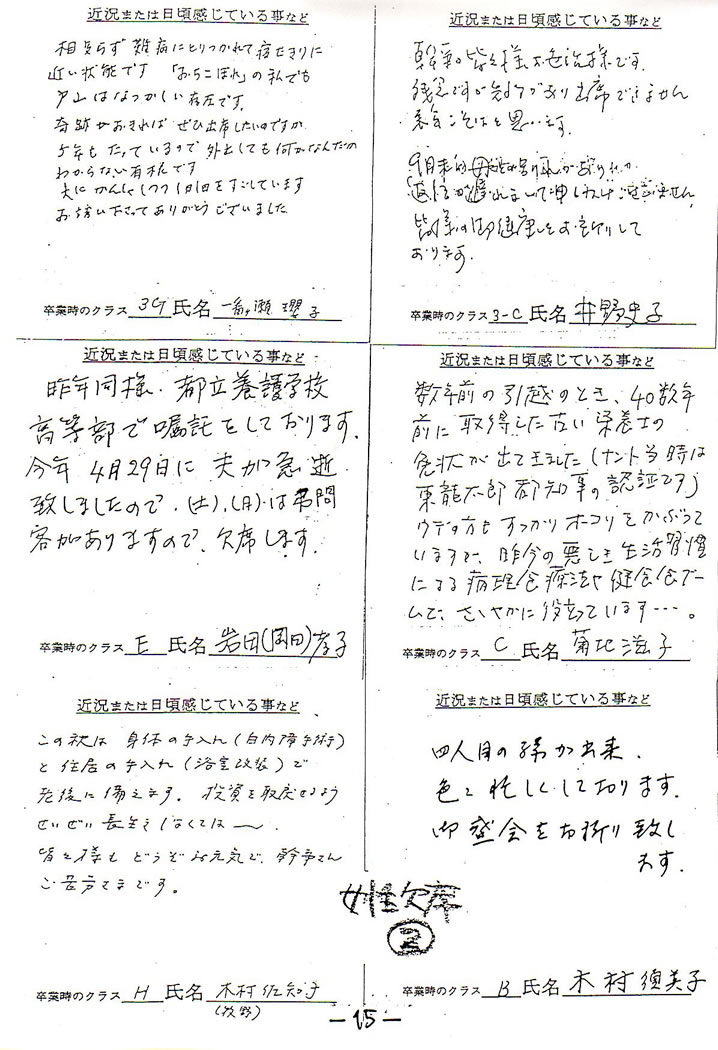 近況または日頃感じている事など
相変らず難病にとりつかれて寝たきりに
近い状態です 「おちこぼれ」の私でも
戸山はなつかしい存在です。
奇跡がおきればぜひ出席したいのですが
5年もたっているので外出しても何がなんだか
わからない有様です
夫にかんしゃしつつ1日1日をすごしています
お誘い下さってありがとうございました
卒業時のクラス 3G 氏名 一ノ瀬 瓔子
近況または日頃感じている事など
幹事の皆々様お世話様です。
残念ですが 出席できません
来年こそはと思います。
9月末に
返信が遅れまして申しわけございません
皆様の御健康をお祈りして
おります。
卒業時のクラス 3-C 氏名 井野史子
近況または日頃感じている事など
昨年同様、都立養護学校
高等部で嘱託をしております。
今年4月29日に夫が急逝
致しましたので、(土)、(月)は弔問
客がありますので、欠席します。
卒業時のクラス E 氏名 岩田(岡田)孝子
近況または日頃感じている事など
数年前の引越のとき、40数年
前に取得した古い栄養士の
免状が出てきました(ナント当時は
東龍太郎都知事の認証です)
ウデの方もすっかりホコリをかぶって
いますが、昨今の悪しき生活習慣
による病理食療法や健食ブー
ムで、ささやかに役立っています…。
卒業時のクラス C 氏名 菊地滋子
近況または日頃感じている事など
この秋は 身体の手入れ(白内障手術)
と住居の手入れ(浴室改装)で
老後に備えます。投資を取戻せるよう
せいぜい長生きしなくては〜。
皆々様も どうぞお元気で、幹事さん
ご苦労さまです。
卒業時のクラス H 氏名 木村佐知子
(牧野)
近況または日頃感じている事など
四人目の孫が出来、
色々忙しくしております。
御盛会をお祈り致し
ます。
卒業時のクラス B 氏名 木村須美子
女性欠席
②
－15－